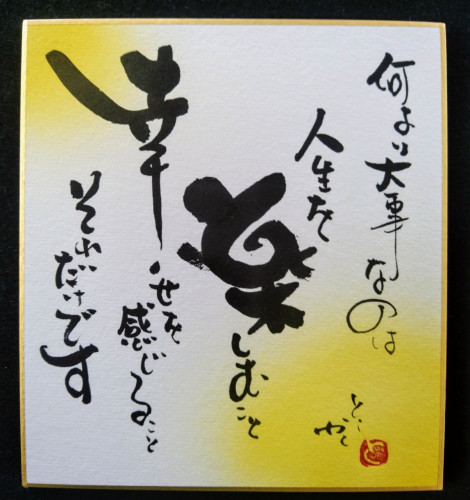 何より大事なのは
人生を
楽しむこと
幸せを感じること
それだけです